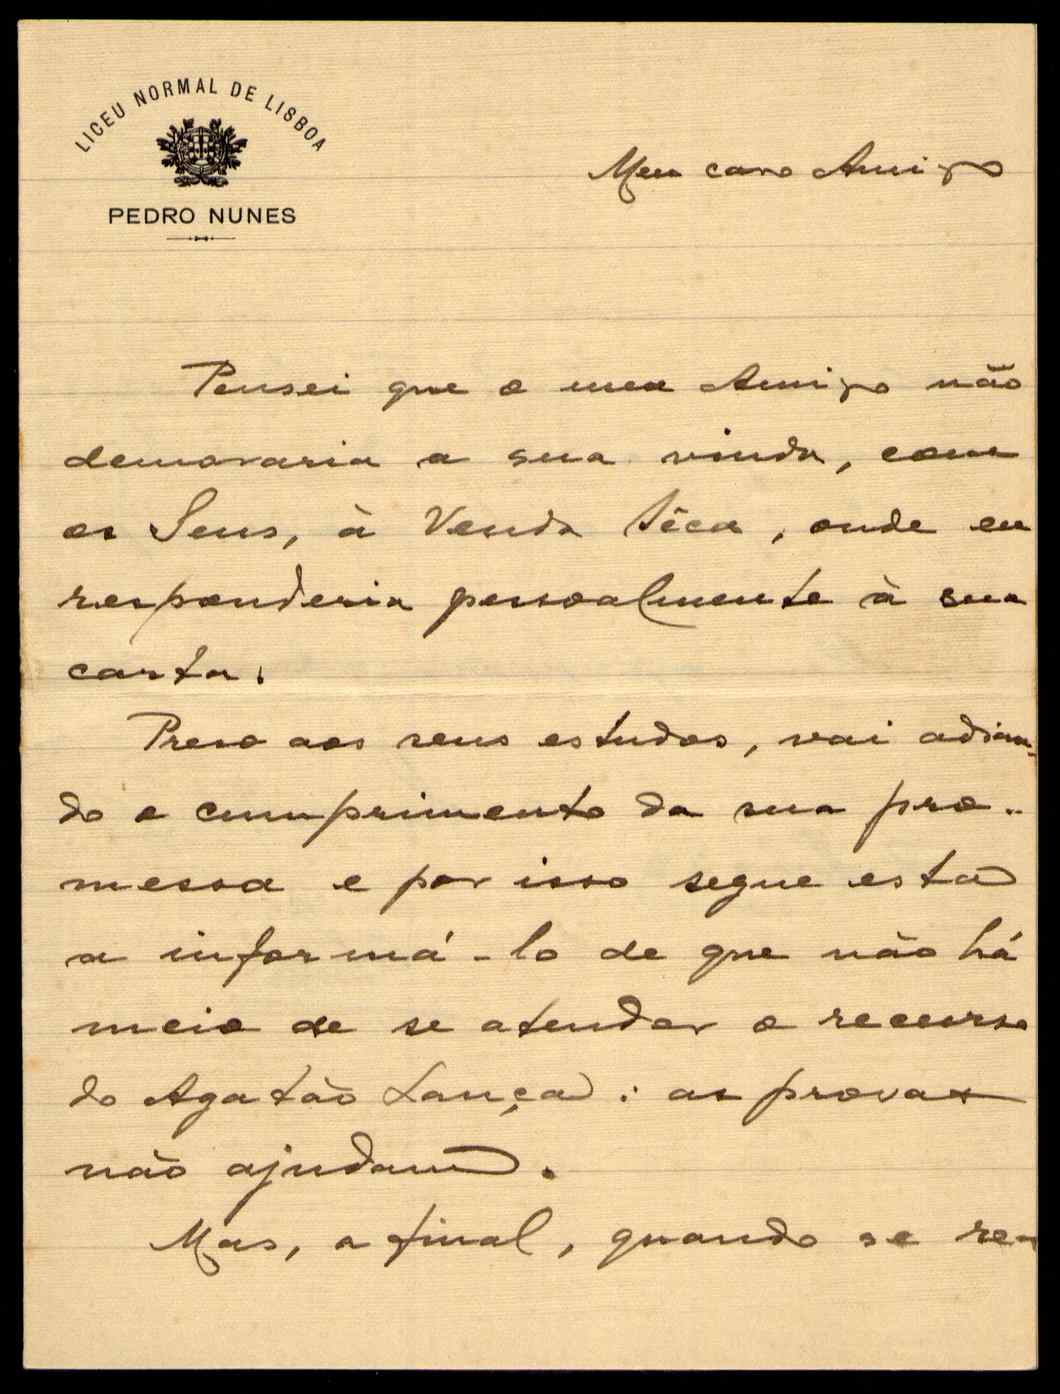 LICEU NORMAL DE LISBOA
PEDRO NUNES
Meu caro Amigo
Pensei que o meu Amigo não
demoraria a sua vinda, com
os Seus, à Venda Sêca, onde eu
responderia pessoalmente à sua
carta.
Preso aos seus estudos, vai adian-
do o cumprimento da sua pro-
messa e por isso segue esta
a informá-lo de que não há
meio de se atender o recurso
do Agatão Lança: as provas
não ajudam.
Mas, afinal, quando se rea